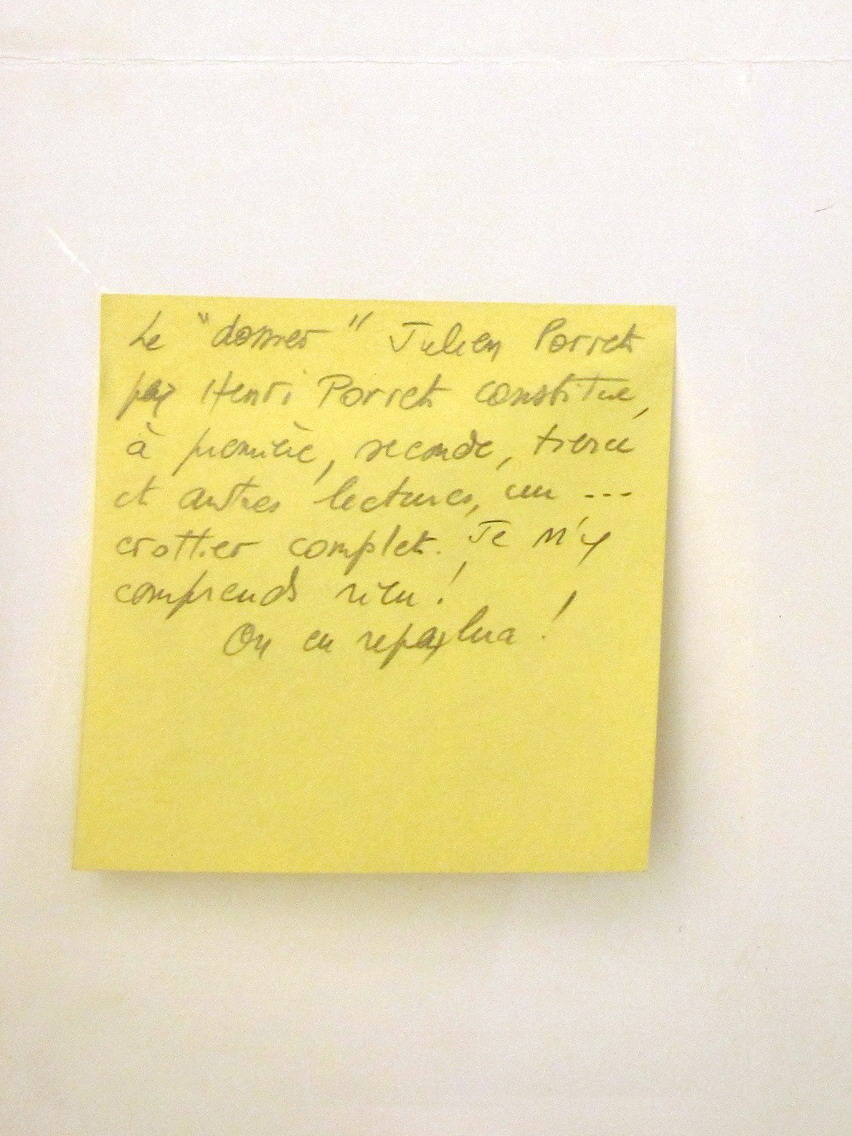 Le "dossier" Julien Porret
par Henri Porret constitue,
à première, seconde, tierce
et autres lectures, un ...
crottier complet. Je m'y
comprends rien !
On en reparlera !